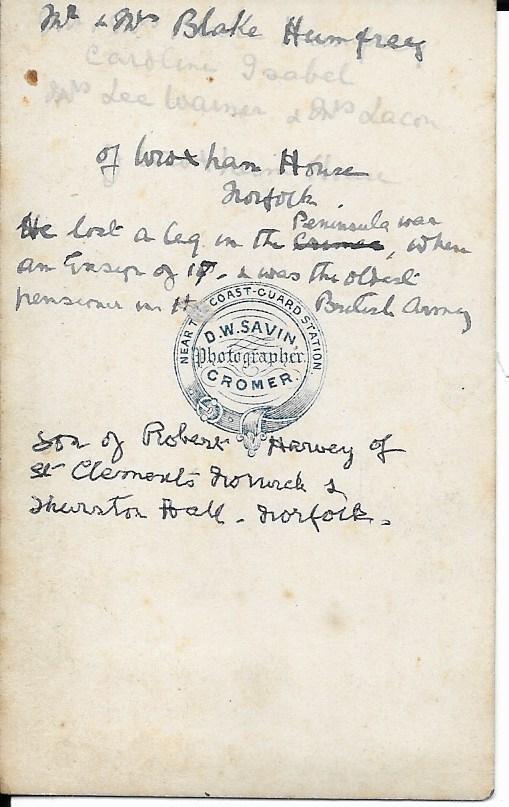 Mr & Mrs Blake Humfrey
Caroline Isabel
Mrs Lee Warner & Mrs Lacon
of Wroxham House
Norfolk.
Peninsula war
He lost a leg in the Crimea, when
an Ensign of 17. & was the oldest
pensioner in the British Army
NEAR THE COAST-GUARD STATION.
D.W. SAVIN,
Photographer.
CROMER.
son of Robert Harvey of
St Clements Norwich &
Thurston Hall - Norfolk.